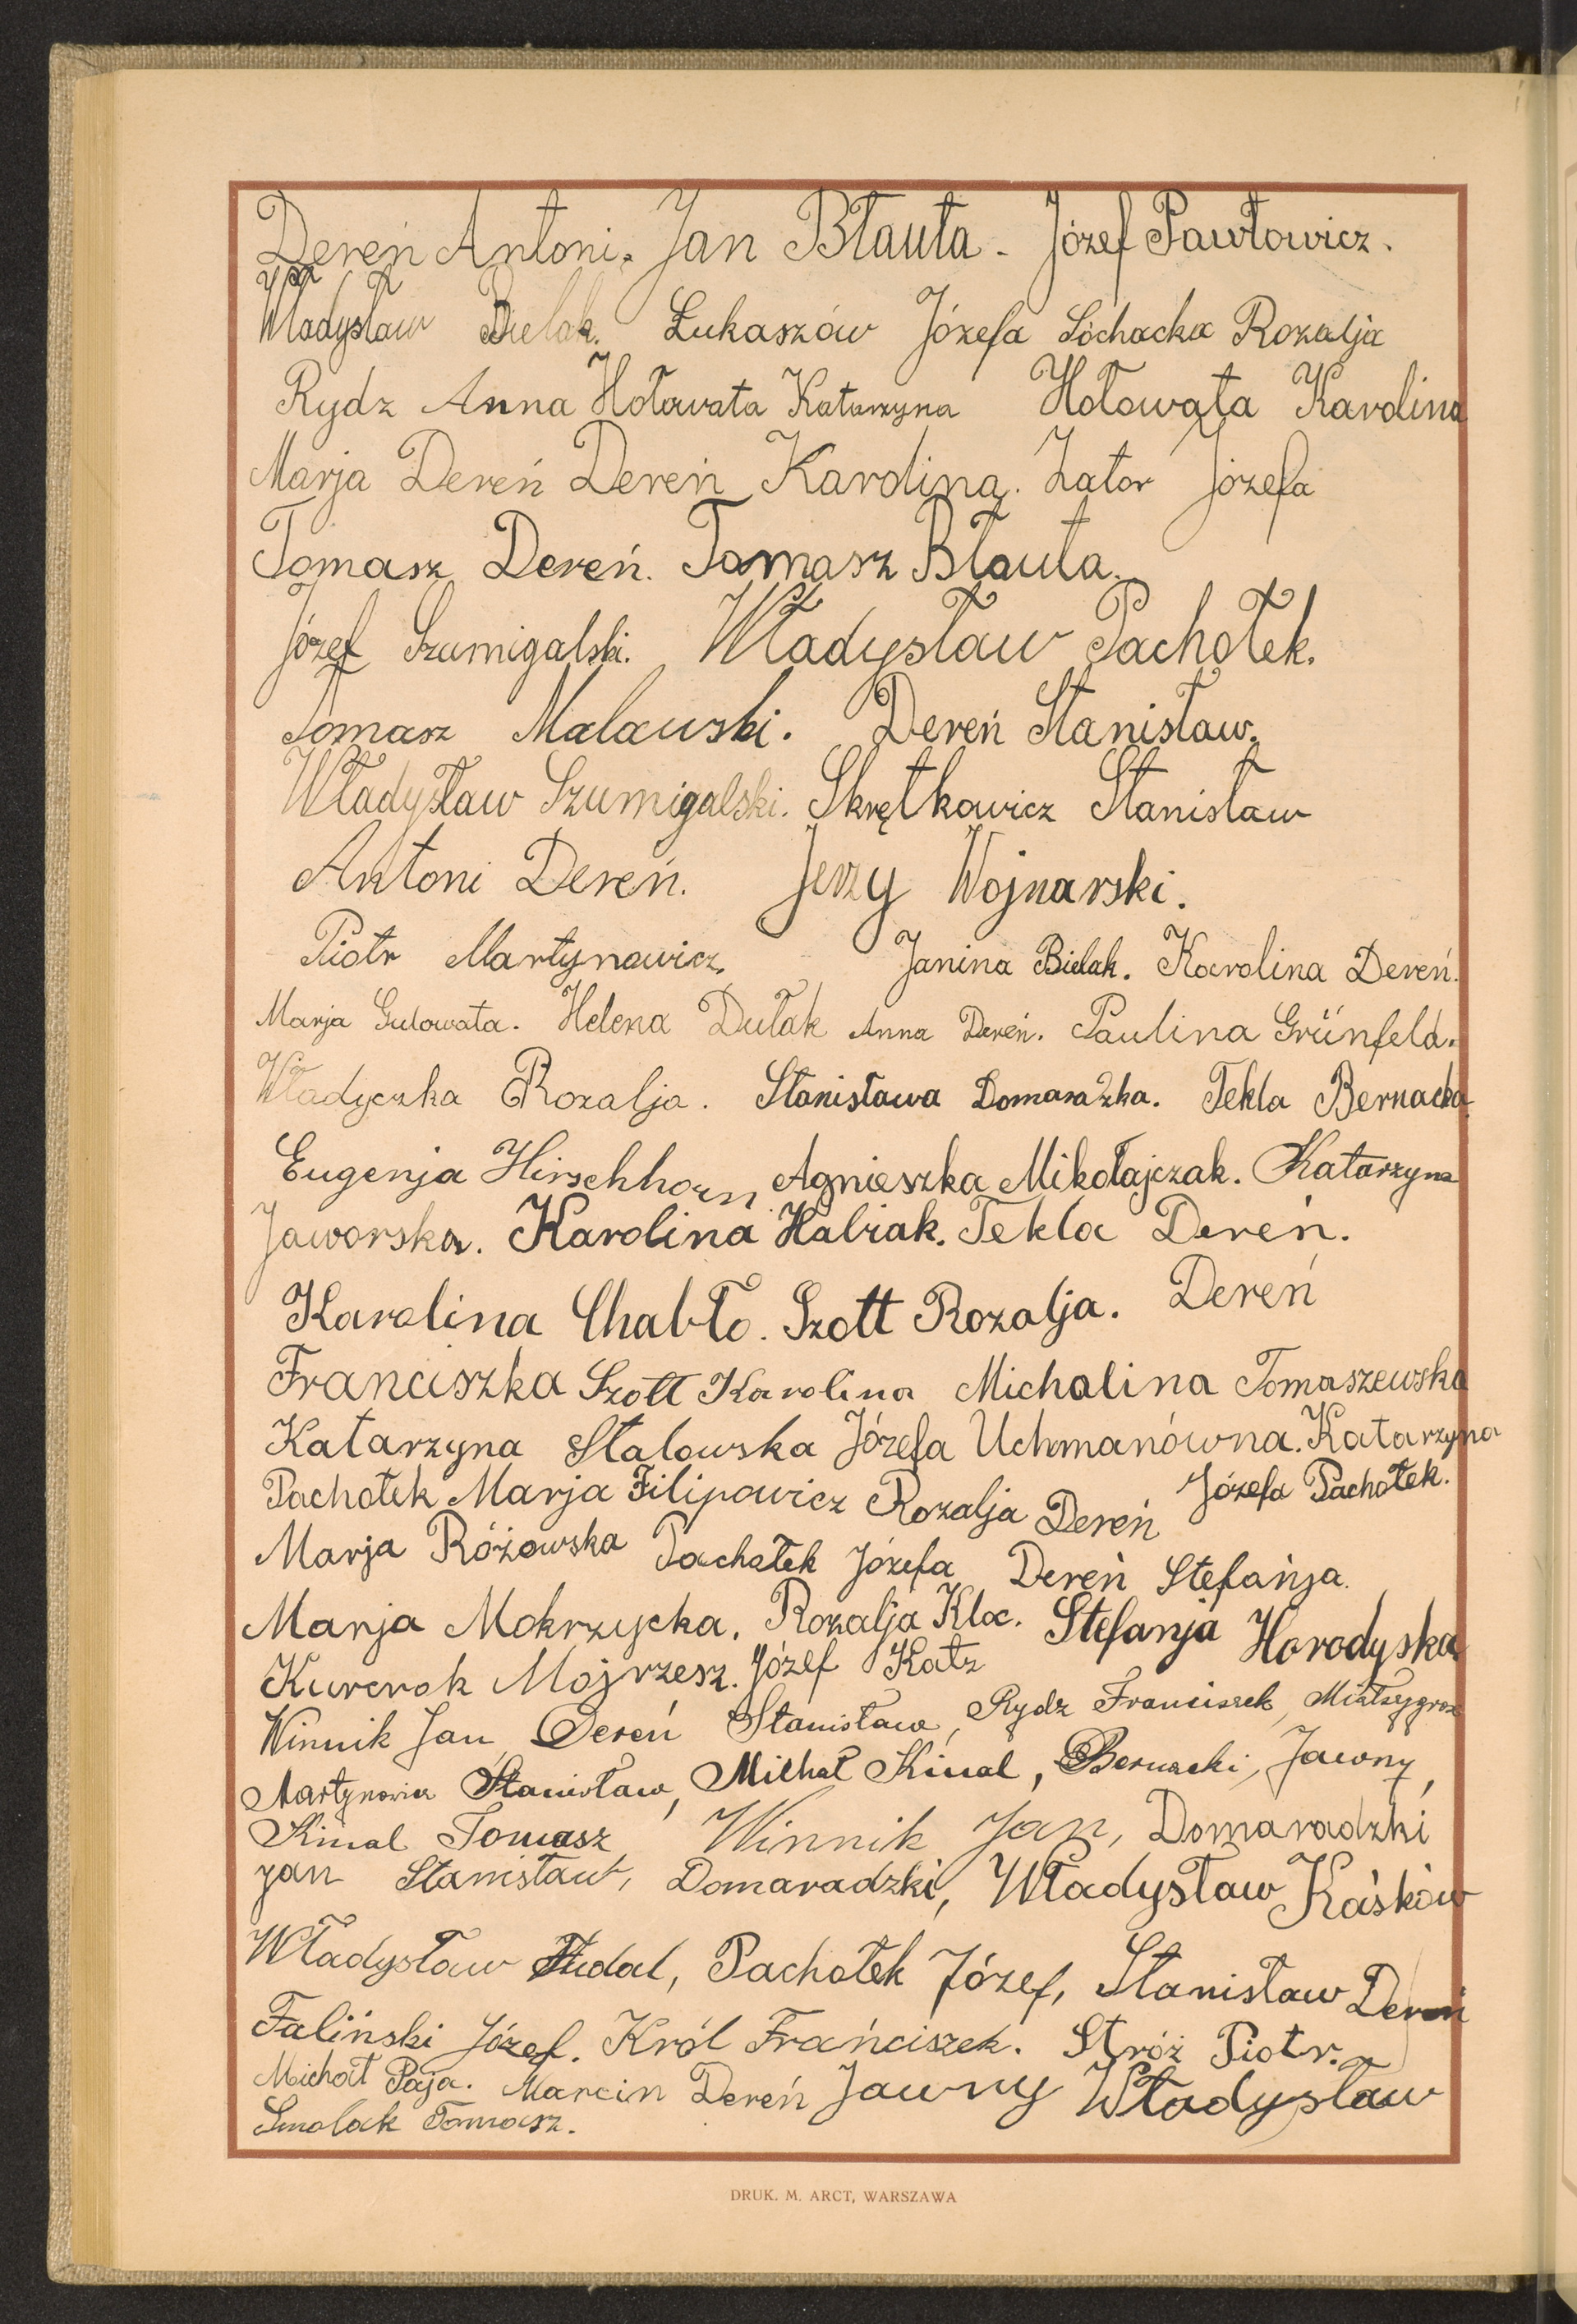 Dereń Antoni. Jan Błauta - Józef Pawłowicz.
Władysław Bielak. Łukaszów Józefa Sochacka Rozalja
Rydz Anna Hołowata Katarzyna Hołowata Karolina
Marja Dereń Dereń Karolina. Zator Józefa
Tomasz Dereń. Tomasz Błauta.
Józef Szumigalski. Władysław Pachołek.
Tomasz Malawski. Dereń Stanisław.
Władysław Szumigalski. Skrętkowicz Stanisław
Antoni Dereń. Jerzy Wojnarski.
Piotr Martynowicz. Janina Bielak. Karolina Dereń.
Marja Gulowata. Helena Dułak Anna Dereń. Paulina Grünfeld.
Władyczka Rozalja. Stanisława Domaradzka. Tekla Bernacka
Eugenja Hirschhorn Agnieszka Mikołajczak. Katarzyna
Jaworska. Karolina Habiak. Tekla Dereń.
Karolina Chabło. Szott Rozalja. Dereń
Franciszka Szott Karolina Michalina Tomaszewska
Katarzyna Stalowska Józefa Uchmanówna. Katarzyna
Pachołek Marja Filipowicz Rozalja Dereń Józefa Pachołek.
Marja Różowska Pachołek Józefa Dereń Stefańja.
Marja Mokrzycka. Rozalja Kloc. Stefanja Horodyska
Mojrzesz. Józef Katz
Winnik Jan Dereń Stanisław, Rydz Franciszek,
Martynowicz Stanisław, Michał Kinal, Bernacki, Jawny,
Kinal Tomasz Winnik Jan, Domaradzki
Jan Stanisław, Domaradzki, Władysław Kaśków
Władysław Pachołek Józef, Stanisław Dereń
Faliński Józef. Król Frańciszek. Stróż Piotr.
Michał Paja. Marcin Dereń Jawny Władysław
Smolak Tomasz.
DRUK. M. ARCT, WARSZAWA